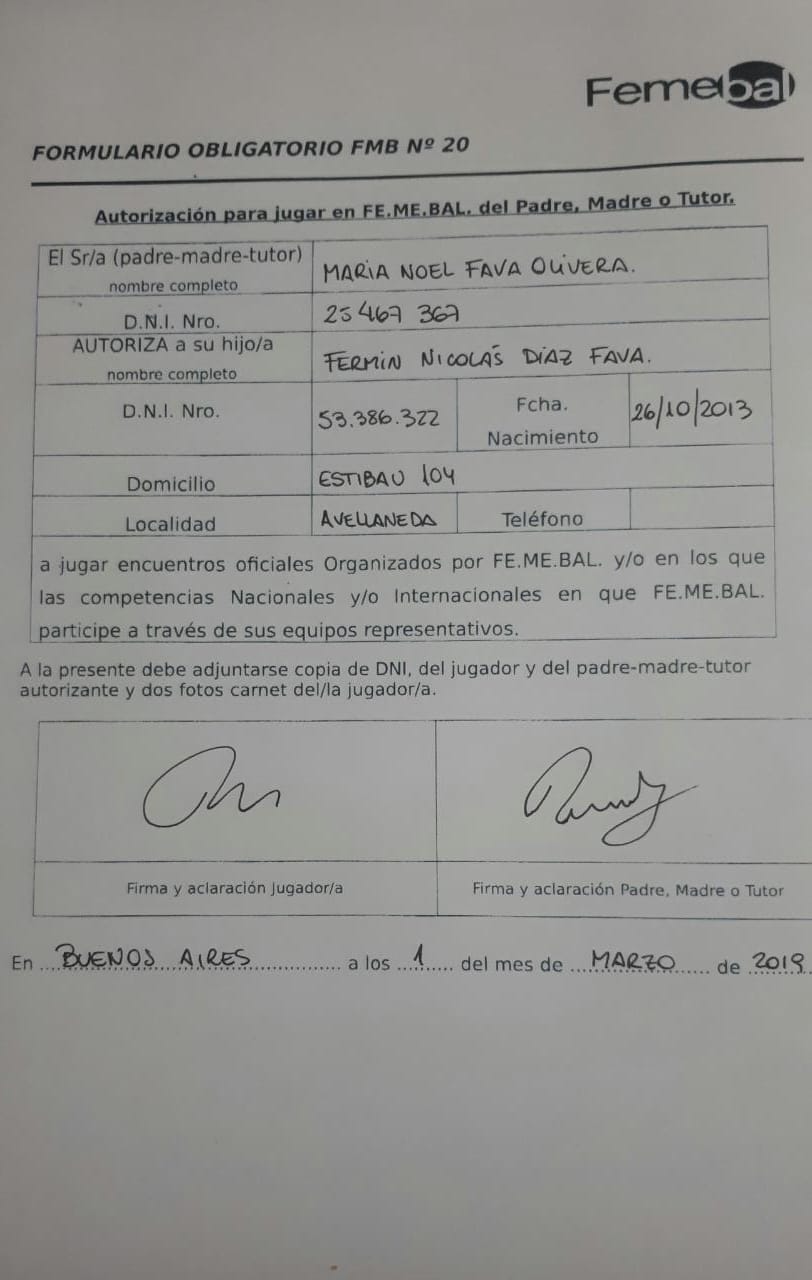 Femebal
FORMULARIO OBLIGATORIO FMB Nº 20
Autorización para jugar en FE.ME.BAL. del Padre, Madre o Tutor.
El Sr/a (padre-madre-tutor) nombre completo MARIA NOEL FAVA OLIVERA.
D.N.I. Nro. 25 467 367
AUTORIZA a su hijo/a nombre completo FERMIN NICOLÁS DÍAZ FAVA.
D.N.I. Nro. 53.386.322 Fcha. Nacimiento 26/10/2013
Domicilio ESTIBAU 104
Localidad AVELLANEDA Teléfono
a jugar encuentros oficiales Organizados por FE.ME.BAL. y/o en los que
las competencias Nacionales y/o Internacionales en que FE.ME.BAL.
participe a través de sus equipos representativos.
A la presente debe adjuntarse copia de DNI, del jugador y del padre-madre-tutor
autorizante y dos fotos carnet del/la jugador/a.
Firma y aclaración Jugador/a Firma y aclaración Padre, Madre o Tutor
En BUENOS AIRES a los 1 del mes de MARZO de 2019